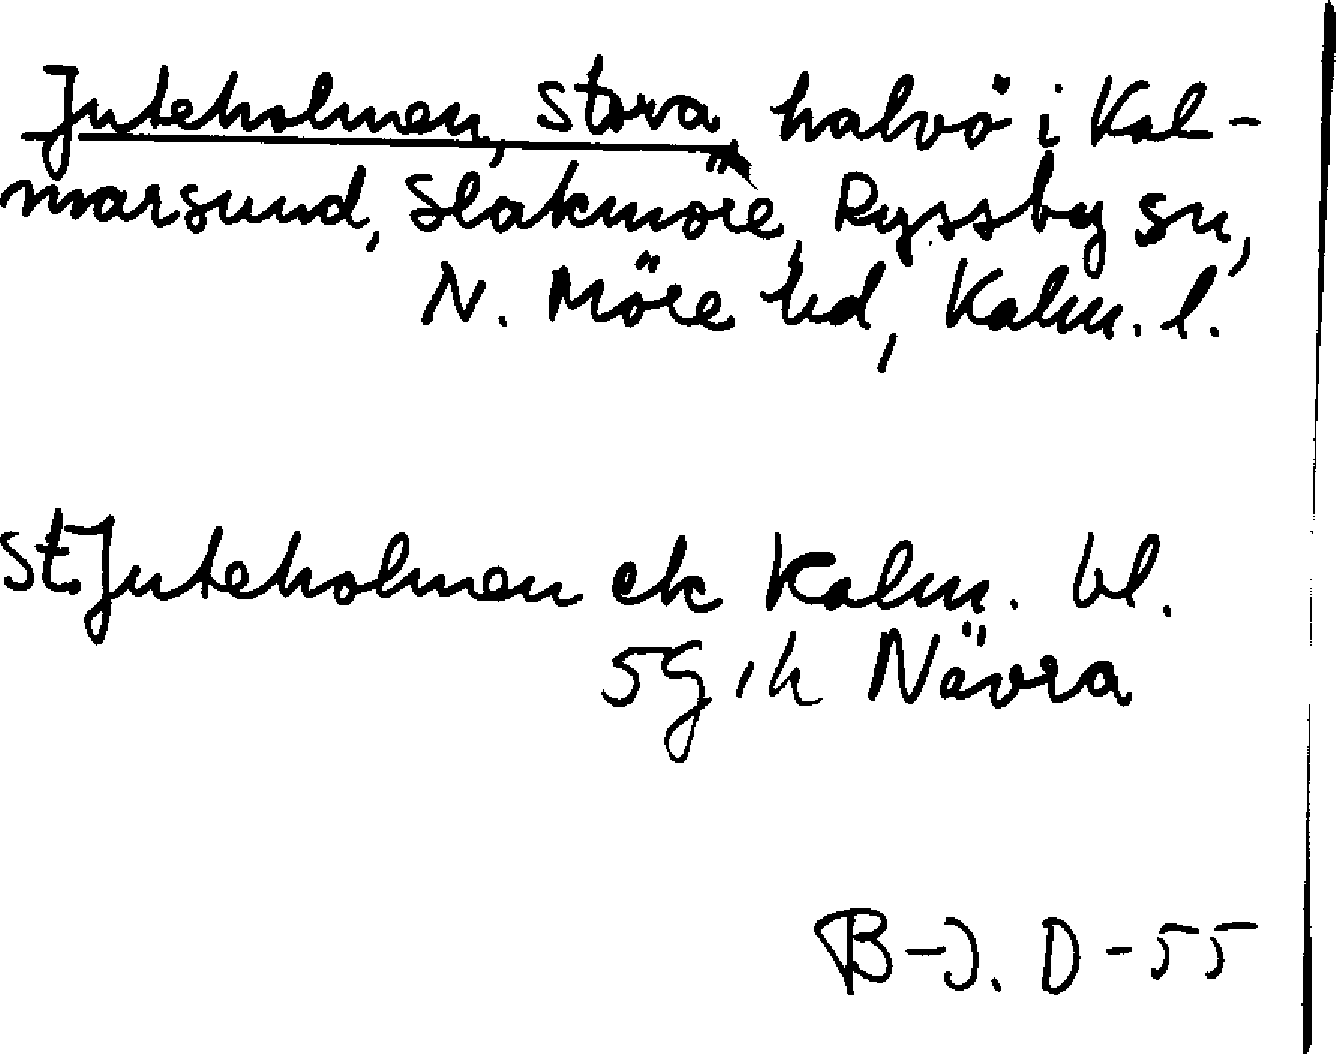 Juteholmen, Stora, halvö i Kal-
marsund, Slakmöre, Ryssby sn,
N. Möre hd, Kalm. l.
St. Juteholmen ek Kalm. bl.
5G, h Nävra
B-J. D-55